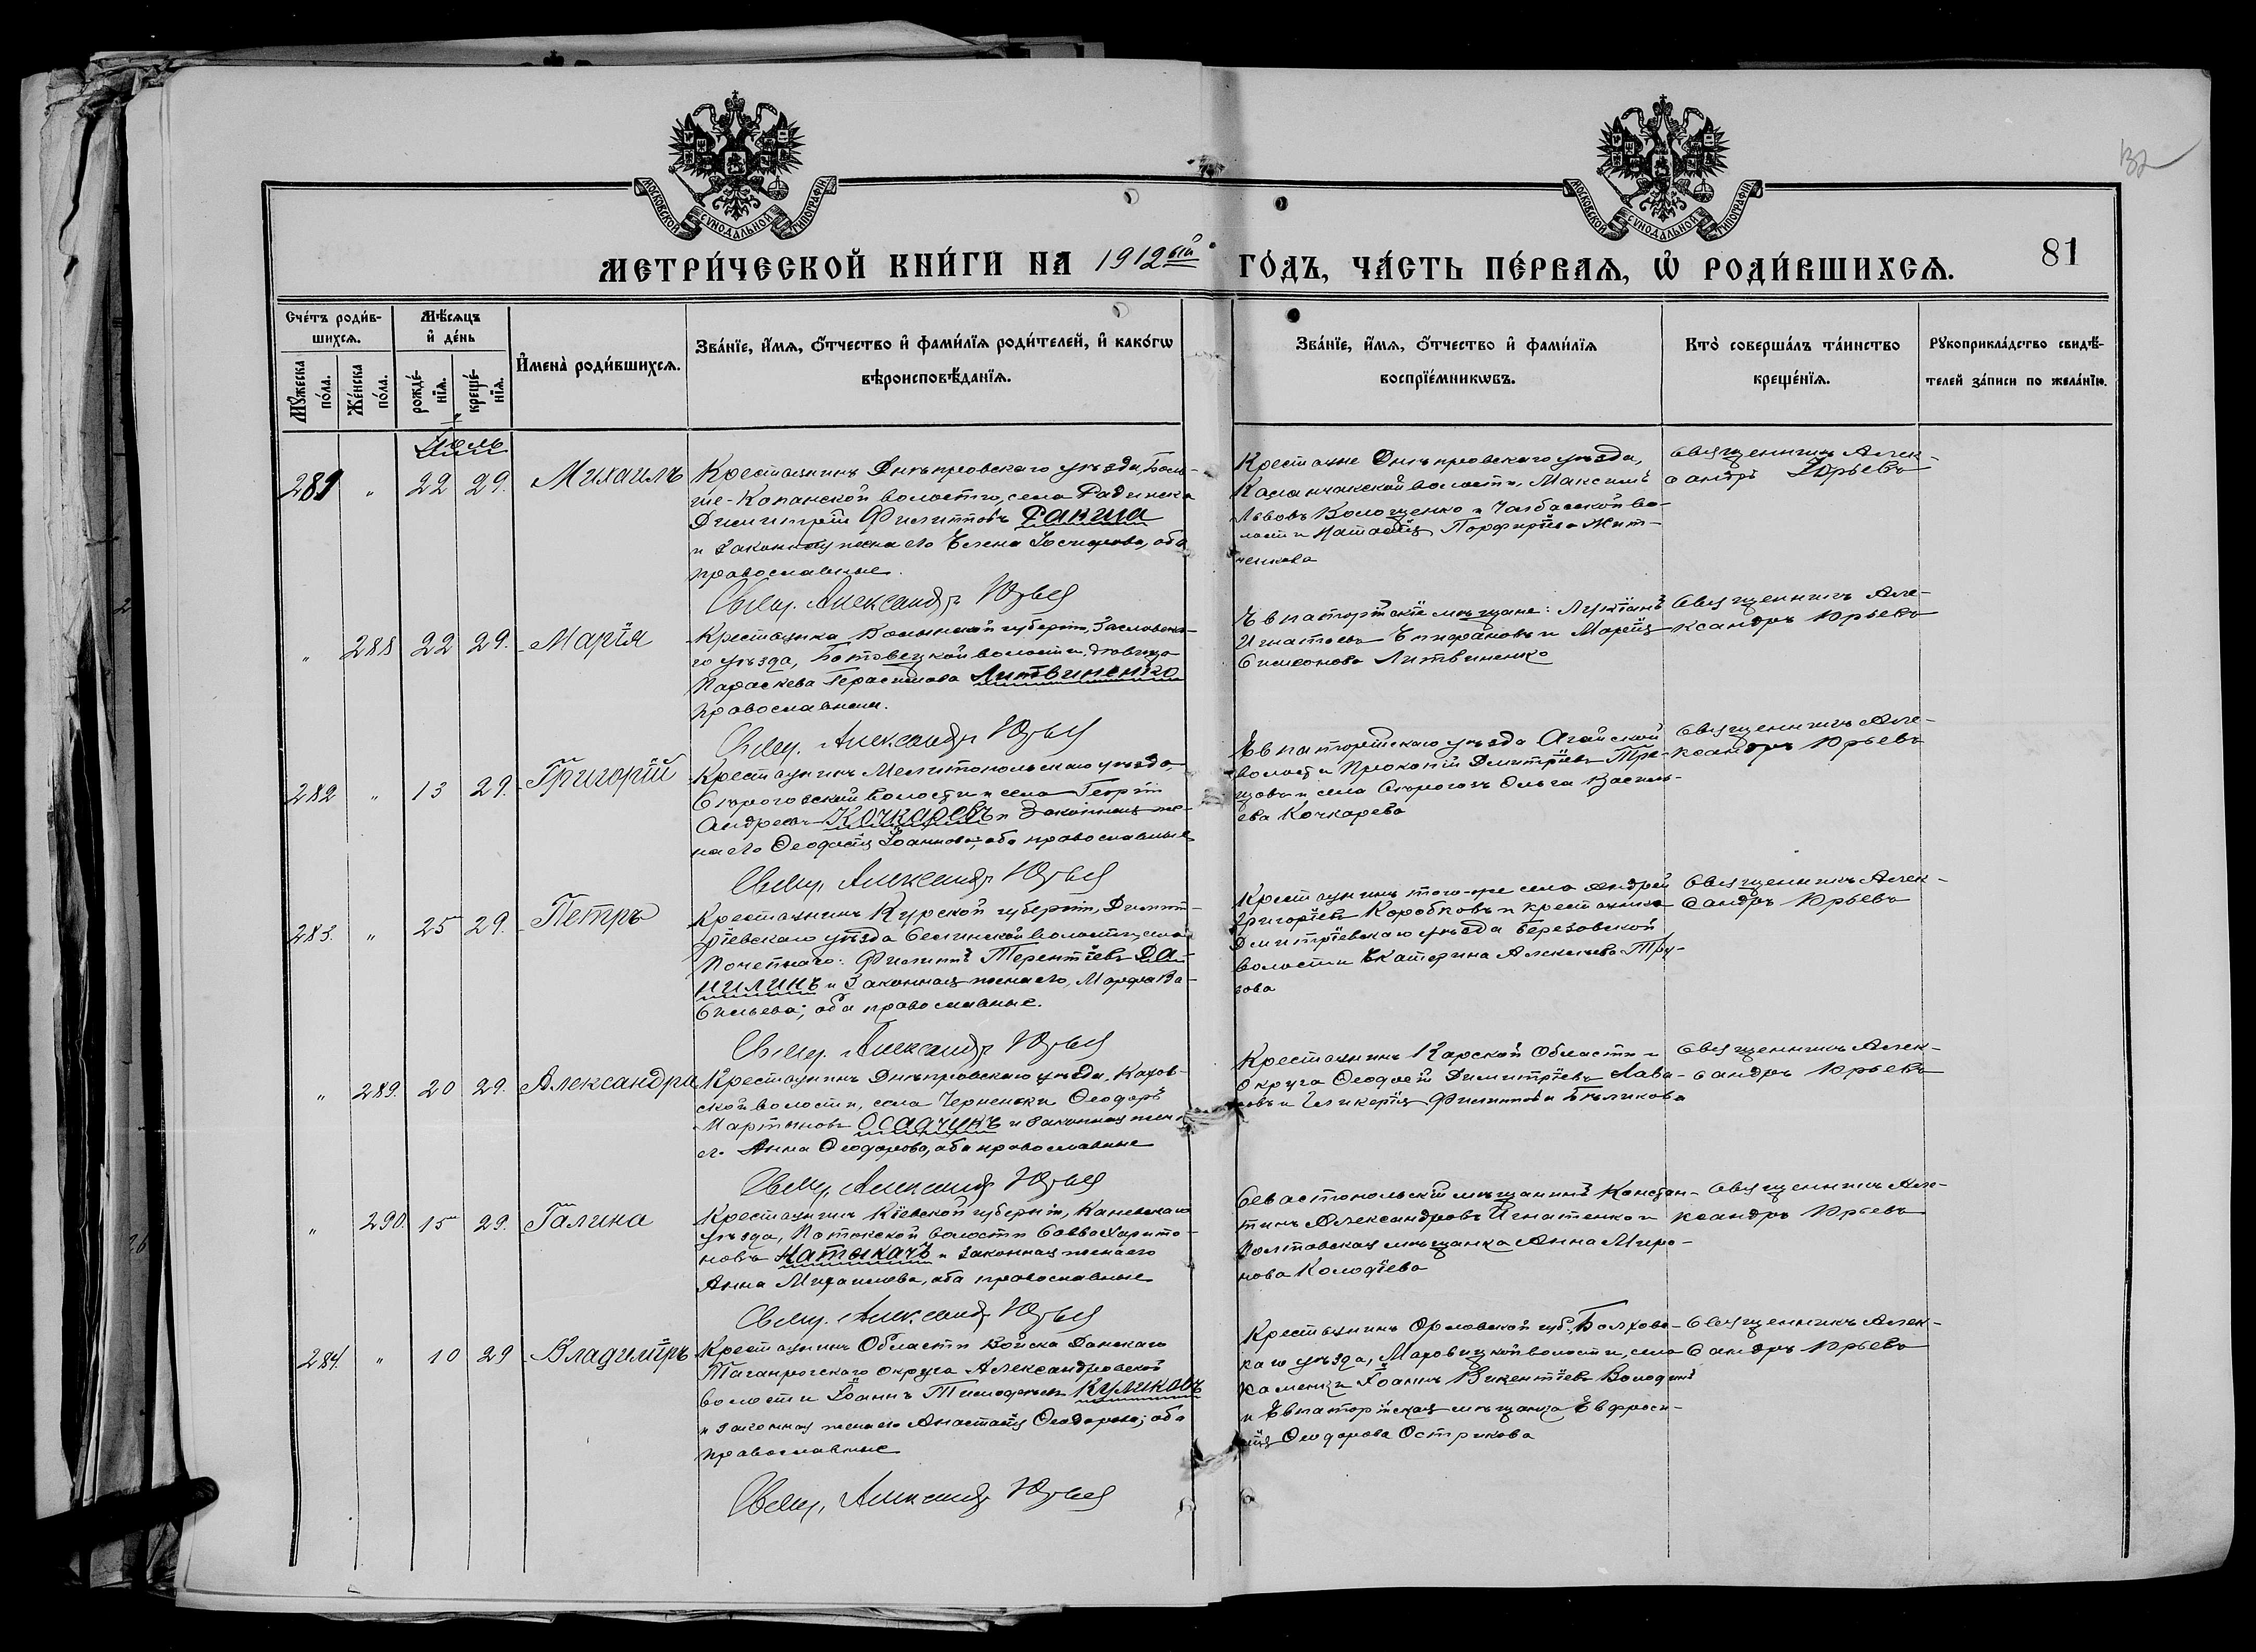 132
МОСКОВСКОЙ СѴНОДАЛЬНОЙ ТИПОГРАФІИ
МОСКОВСКОЙ СѴНОДАЛЬНОЙ ТИПОГРАФІИ
МЕТРИ́ЧЕСКОЙ КНИ́ГИ НА 1912ый ГО́ДЪ, ЧА́СТЬ ПЕ́РВАЯ, Ѡ҆ РОДИ́ВШИХСЯ.
81
Сче́тъ роди́в-
шихся.
Мѣ́сяцъ
и҆ де́нь
Мꙋ́жеска
по́ла.
Же́нска
по́ла.
рожде́-
нїя.
креще́-
нїя.
И҆мена̀ роди́вшихся.
Зва́нїе, и҆́мя, ѻ҆́тчество и҆ фами́лїя роди́телей, и҆ како́гѡ
вѣроисповѣ́данїя.
Зва́нїе, и҆́мя, ѻ҆́тчество и҆ фами́лїя
воспрїе́мникѡвъ.
Кто̀ соверша́лъ та́инство
креще́нїя.
Рꙋкоприкла́дство свидѣ́-
телей за́писи по жела́нїю.
Іюль
281 " 22 29. Михаилъ
Крестьянинъ Днѣпровскаго уѣзда, Боль-
ше-Копанской волости, села Радинска
Димитрій Филипповъ Ракша
и законная жена его Елена Іосифова, оба
православные.
Свящ. Александр Юрьев
Крестьяне Днѣпровскаго уѣзда,
Каланчакской волости, Максимъ
Львовъ Волощенко и Чалбасской во-
лости Наталія Порфиріева Жит-
ченкова
Священникъ Алек-
сандръ Юрьевъ
" 288 22 29. Марія
Крестьянка Волынской губерніи, Заславска-
го уѣзда, волости, дѣвица
Параскева Герасимова Литвиненко
православная.
Свящ. Александр Юрьев
Евпаторійскіе мѣщане: Лукіанъ
Игнатьевъ Епифановъ и Марія
Симеонова Литвиненко
Священникъ Але-
ксандръ Юрьевъ
282 " 13 29. Григорій
Крестьянинъ Мелитопольскаго уѣзда,
Сирогозской волости и села Георгій
Андреевъ Кочкаревъ и законная же-
на его Ѳеодосія Іоаннова, оба православные
Свящ. Александр Юрьев
Евпаторійскаго уѣзда Агайской
волости Прокопій Дмитріевъ Тре-
щовъ и села Сирогозъ Ольга Василь-
ева Кочкарева
Священникъ Але-
ксандръ Юрьевъ
283. " 25 29. Петръ
Крестьянинъ Курской губерніи, Димит-
ріевскаго уѣзда волости, села
Почепнаго: Филиппъ Терентіевъ Да-
нилинъ и законная жена его, Марфа Ва-
сильева; оба православные.
Свящ. Александр Юрьев
Крестьянинъ того-же села Андрей
Григорьевъ Коробковъ и крестьянка
Дмитріевскаго уѣзда Березовской
волости Екатерина Алексѣева Тру-
сова
Священникъ Алек-
сандръ Юрьевъ
" 289. 20 29. Александра
Крестьянинъ Днѣпровскаго уѣзда, Кахов-
ской волости, села Черненьки Ѳеодоръ
Мартыновъ Осадчукъ и законная жена
его Анна Ѳеодорова, оба православные
Свящ. Александр Юрьев
Крестьянинъ Карской Области и
округа Ѳеодосій Димитріевъ Лава-
новъ и Гликерія Филиппова Бѣликова
Священникъ Алек-
сандръ Юрьевъ
" 290. 15 29. Галина
Крестьянинъ Кіевской губерніи, Каневскаго
уѣзда, Потокской волости Савва Харито-
новъ Натыкачъ и законная жена его
Анна Михаилова, оба православные
Свящ. Александр Юрьев
Севастопольскій мѣщанинъ Констан-
тинъ Александровъ Игнатенко и
Полтавская мѣщанка Анна Миро-
нова Колодіева
Священникъ Але-
ксандръ Юрьевъ
284. " 10 29 Владиміръ
Крестьянинъ Области Войска Донскаго
Таганрогскаго округа Александровской
волости Іоаннъ Тимофеевъ Куликовъ
и законная жена его Анастасія Ѳеодорова; оба
православные
Свящ. Александр Юрьев
Крестьянинъ Орловской губ., Болховс-
каго уѣзда, волости, села
Каменки Іоаннъ Викентіевъ Володинъ
и Евпаторійская мѣщанка Евфроси-
нія Ѳеодорова Острикова
Священникъ Алек-
сандръ Юрьевъ